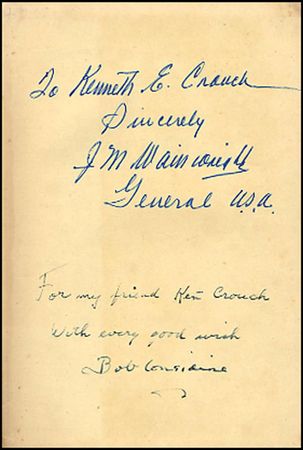 To Kenneth E. Crouch
Sincerely
J M Wainwright
General U.S.A.
For my friend Ken Crouch
With every good wish
Bob Considine